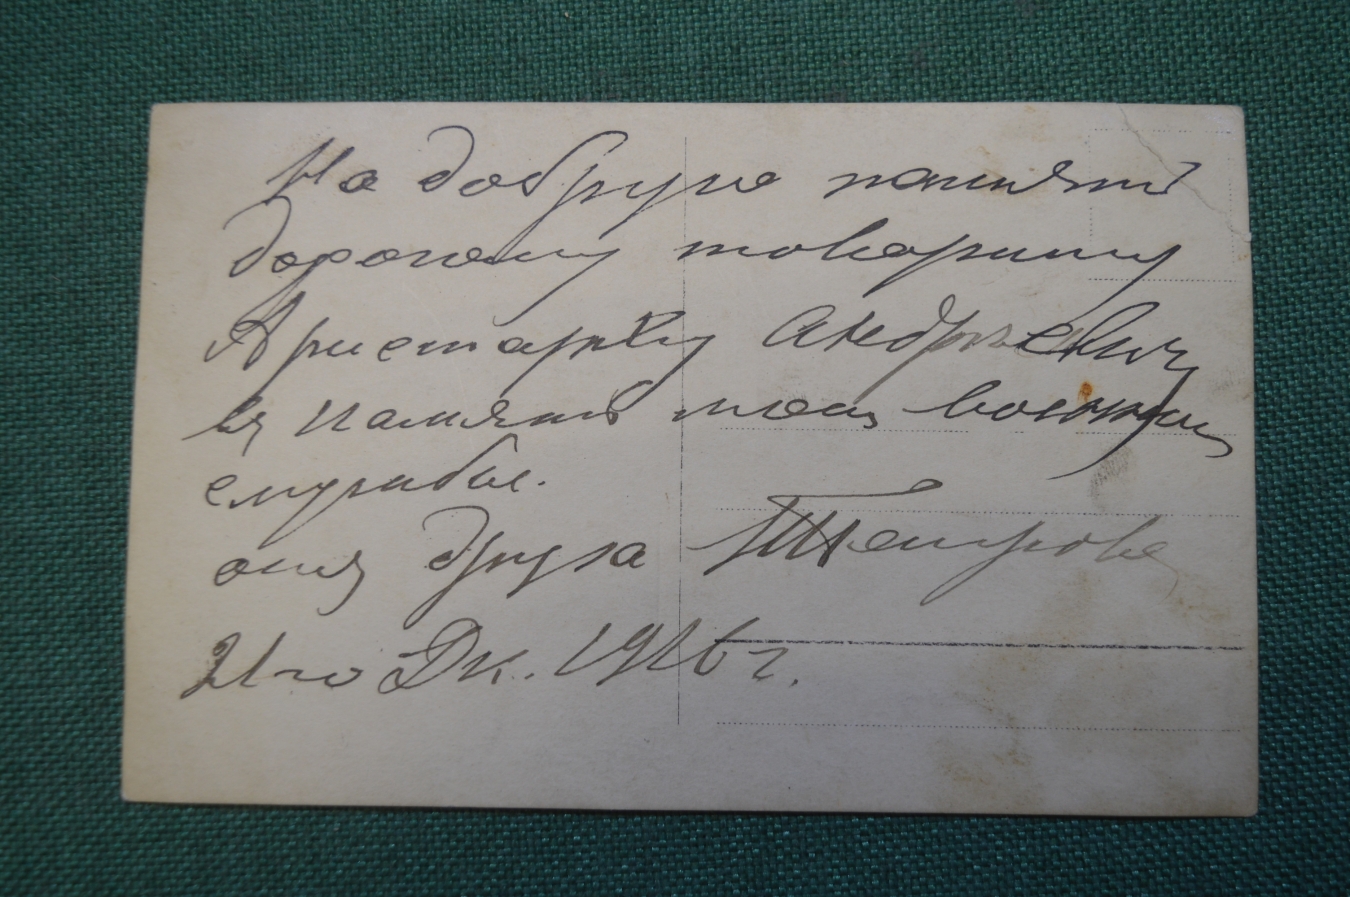 На добрую память
дорогому товарищу
Аристарху Андреевичу
въ память моей военной
службы.
отъ друга Петрова
21-го Дк. 1916 г.